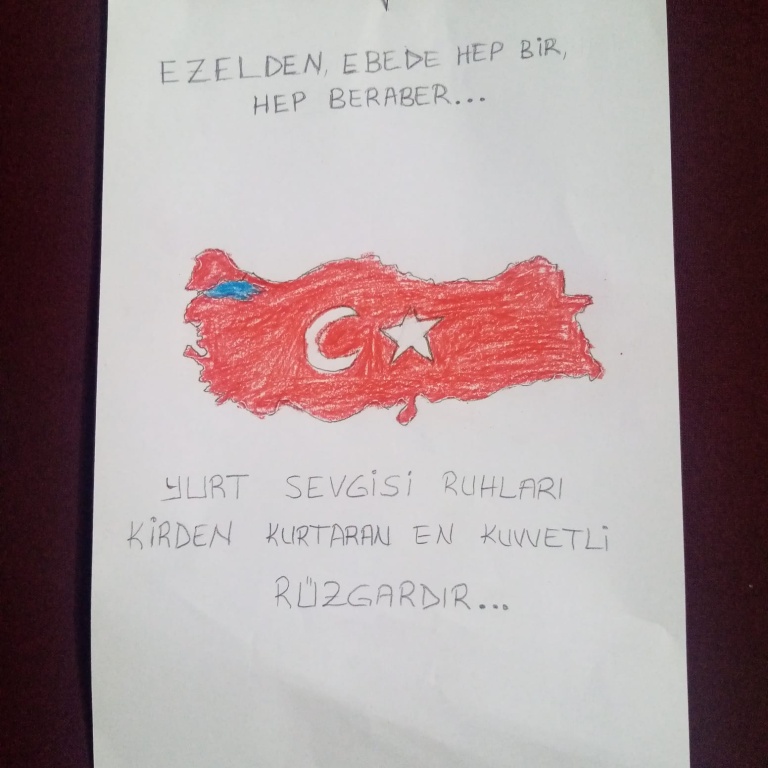 EZELDEN, EBEDE HEP BİR,
HEP BERABER...
YURT SEVGİSİ RUHLARI
KİRDEN KURTARAN EN KUVVETLİ
RÜZGARDIR...